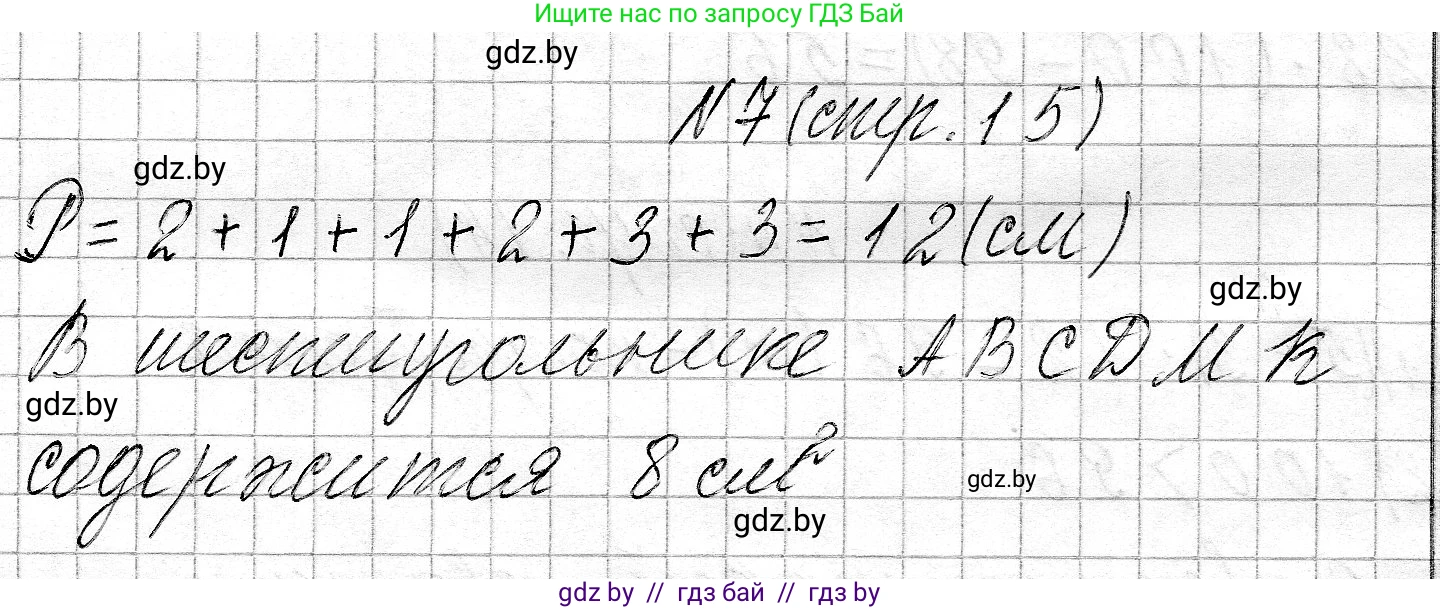 Ищите нас по запросу ГДЗ Бай
gdz.by
N 7 (стр. 15)
gdz.by
P = 2 + 1 + 1 + 2 + 3 + 3 = 12 (см)
gdz.by
В шестиугольнике ABCDMK
gdz.by
содержится 8 см²
gdz.by
gdz.by
gdz by // гдз бай // гдз by